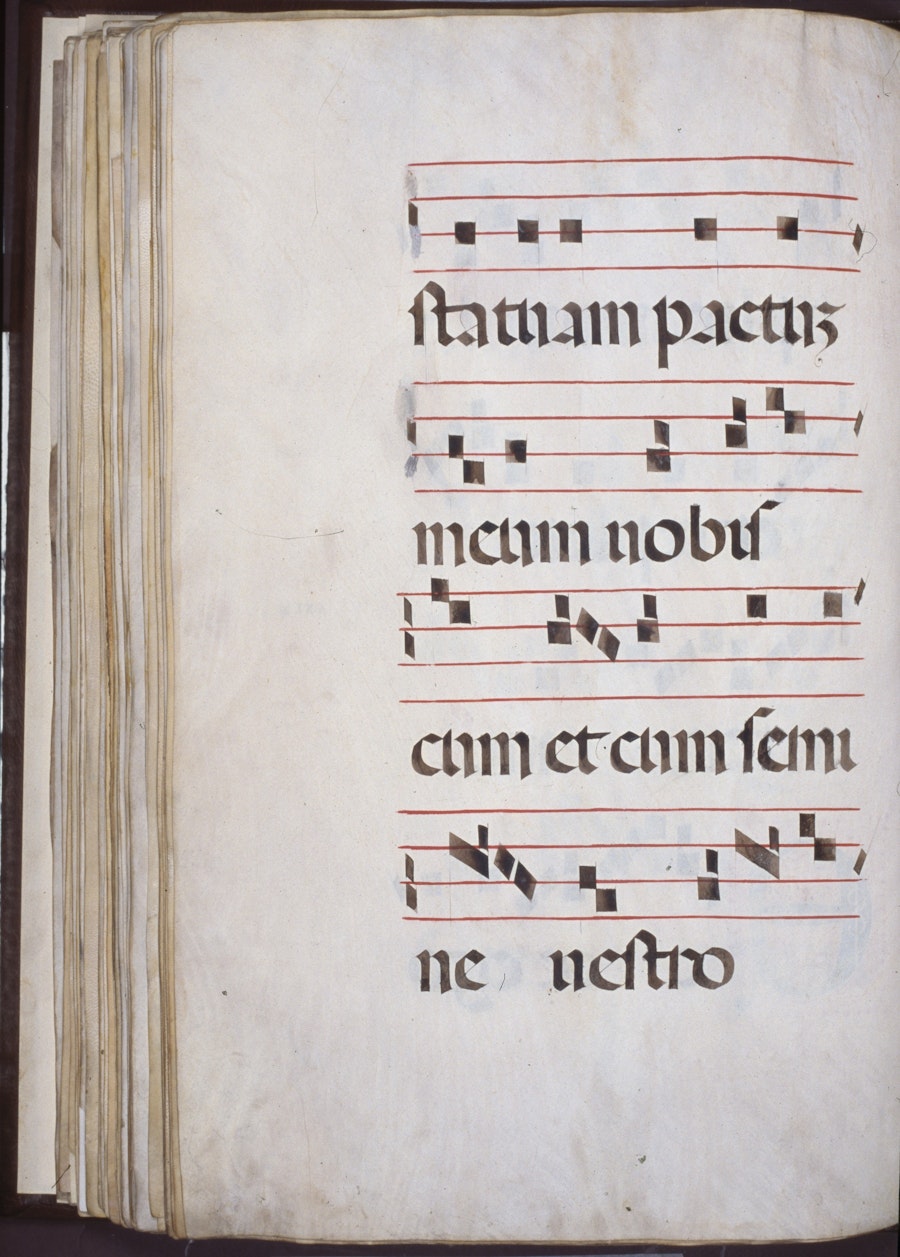 statuam pactuꝫ
meum uobis
cum et cum semi
ne uestro